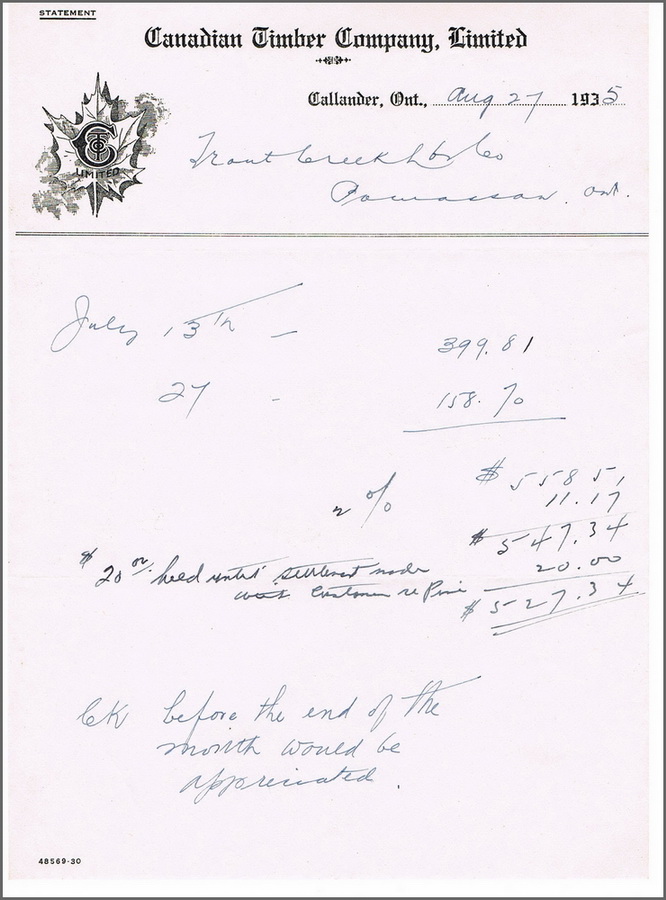 STATEMENT
Canadian Timber Company, Limited
Callander, Ont., Aug 27 1935
LIMITED
Trout Creek Lbr Co
Powassan, Ont.
July 13th - 399.81
27 - 158.70
$558.51
2 % 11.17
$547.34
$20.00 held until settlement made 20.00
with Customer re Pine $527.34
Ck before the end of the
month would be
appreciated.
48569-30